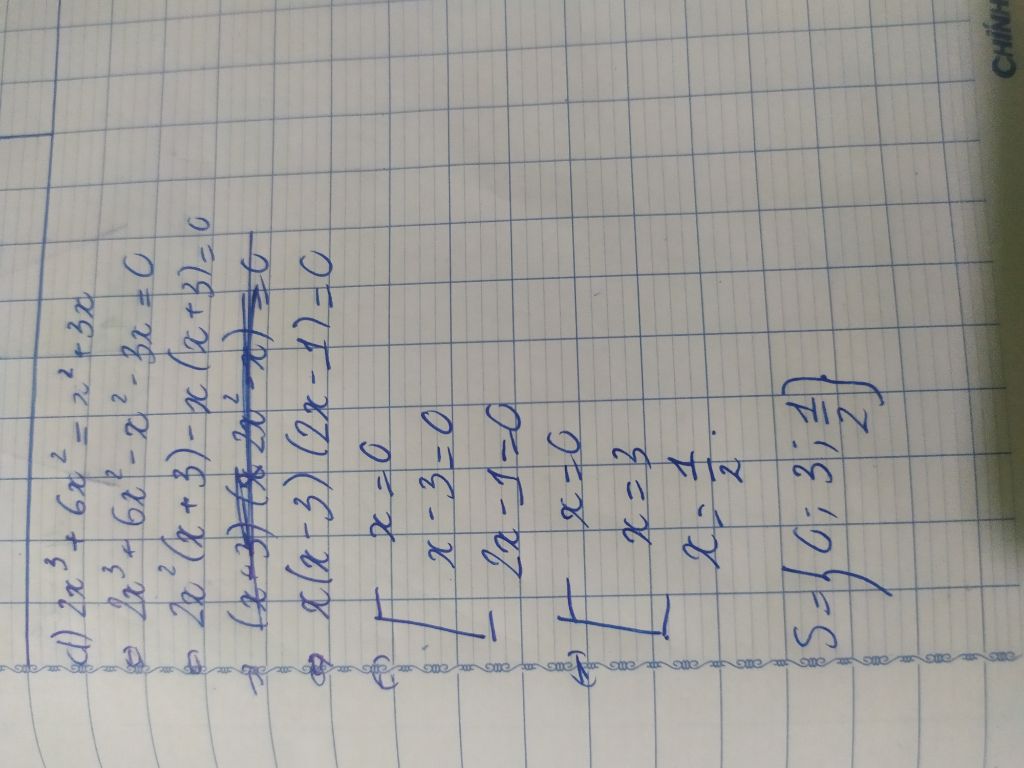 d) 2x³ + 6x² = x² + 3x
⇔ 2x³ + 6x² - x² - 3x = 0
⇔ 2x²(x + 3) - x(x + 3) = 0
⇔ x(x - 3)(2x - 1) = 0
⇔ [ x = 0
x - 3 = 0
2x - 1 = 0
⇔ [ x = 0
x = 3
x = 1/2.
S = { 0; 3; 1/2 }
CHÍNH